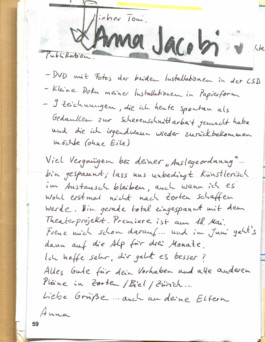 Lieber Tom,
Anna Jacobi
Publikation
- DVD mit Fotos der beiden Installationen in der CSD
- Kleine Doku meiner Installationen in Papierform
- 3 Zeichnungen, die ich heute spontan als
Gedanken zur Scherenschnittarbeit gemacht habe
und die ich irgendwann wieder zurückbekommen
möchte (ohne Eile)
Viel Vergnügen bei deiner „Auslegeordnung" -
bin gespannt; lass uns unbedingt künstlerisch
im Austausch bleiben, auch wenn ich es
wohl erstmal nicht nach Zorten schaffen
werde. Bin gerade total eingespannt mit dem
Theaterprojekt. Premiere ist am 11. Mai
Freue mich schon darauf... und im Juni geht's
dann auf die Alp für drei Monate.
Ich hoffe sehr, dir geht es besser?
Alles Gute für dein Vorhaben und alle anderen
Pläne in Zorten / Biel / Zürich...
Liebe Grüße... auch an deine Eltern
Anna
59